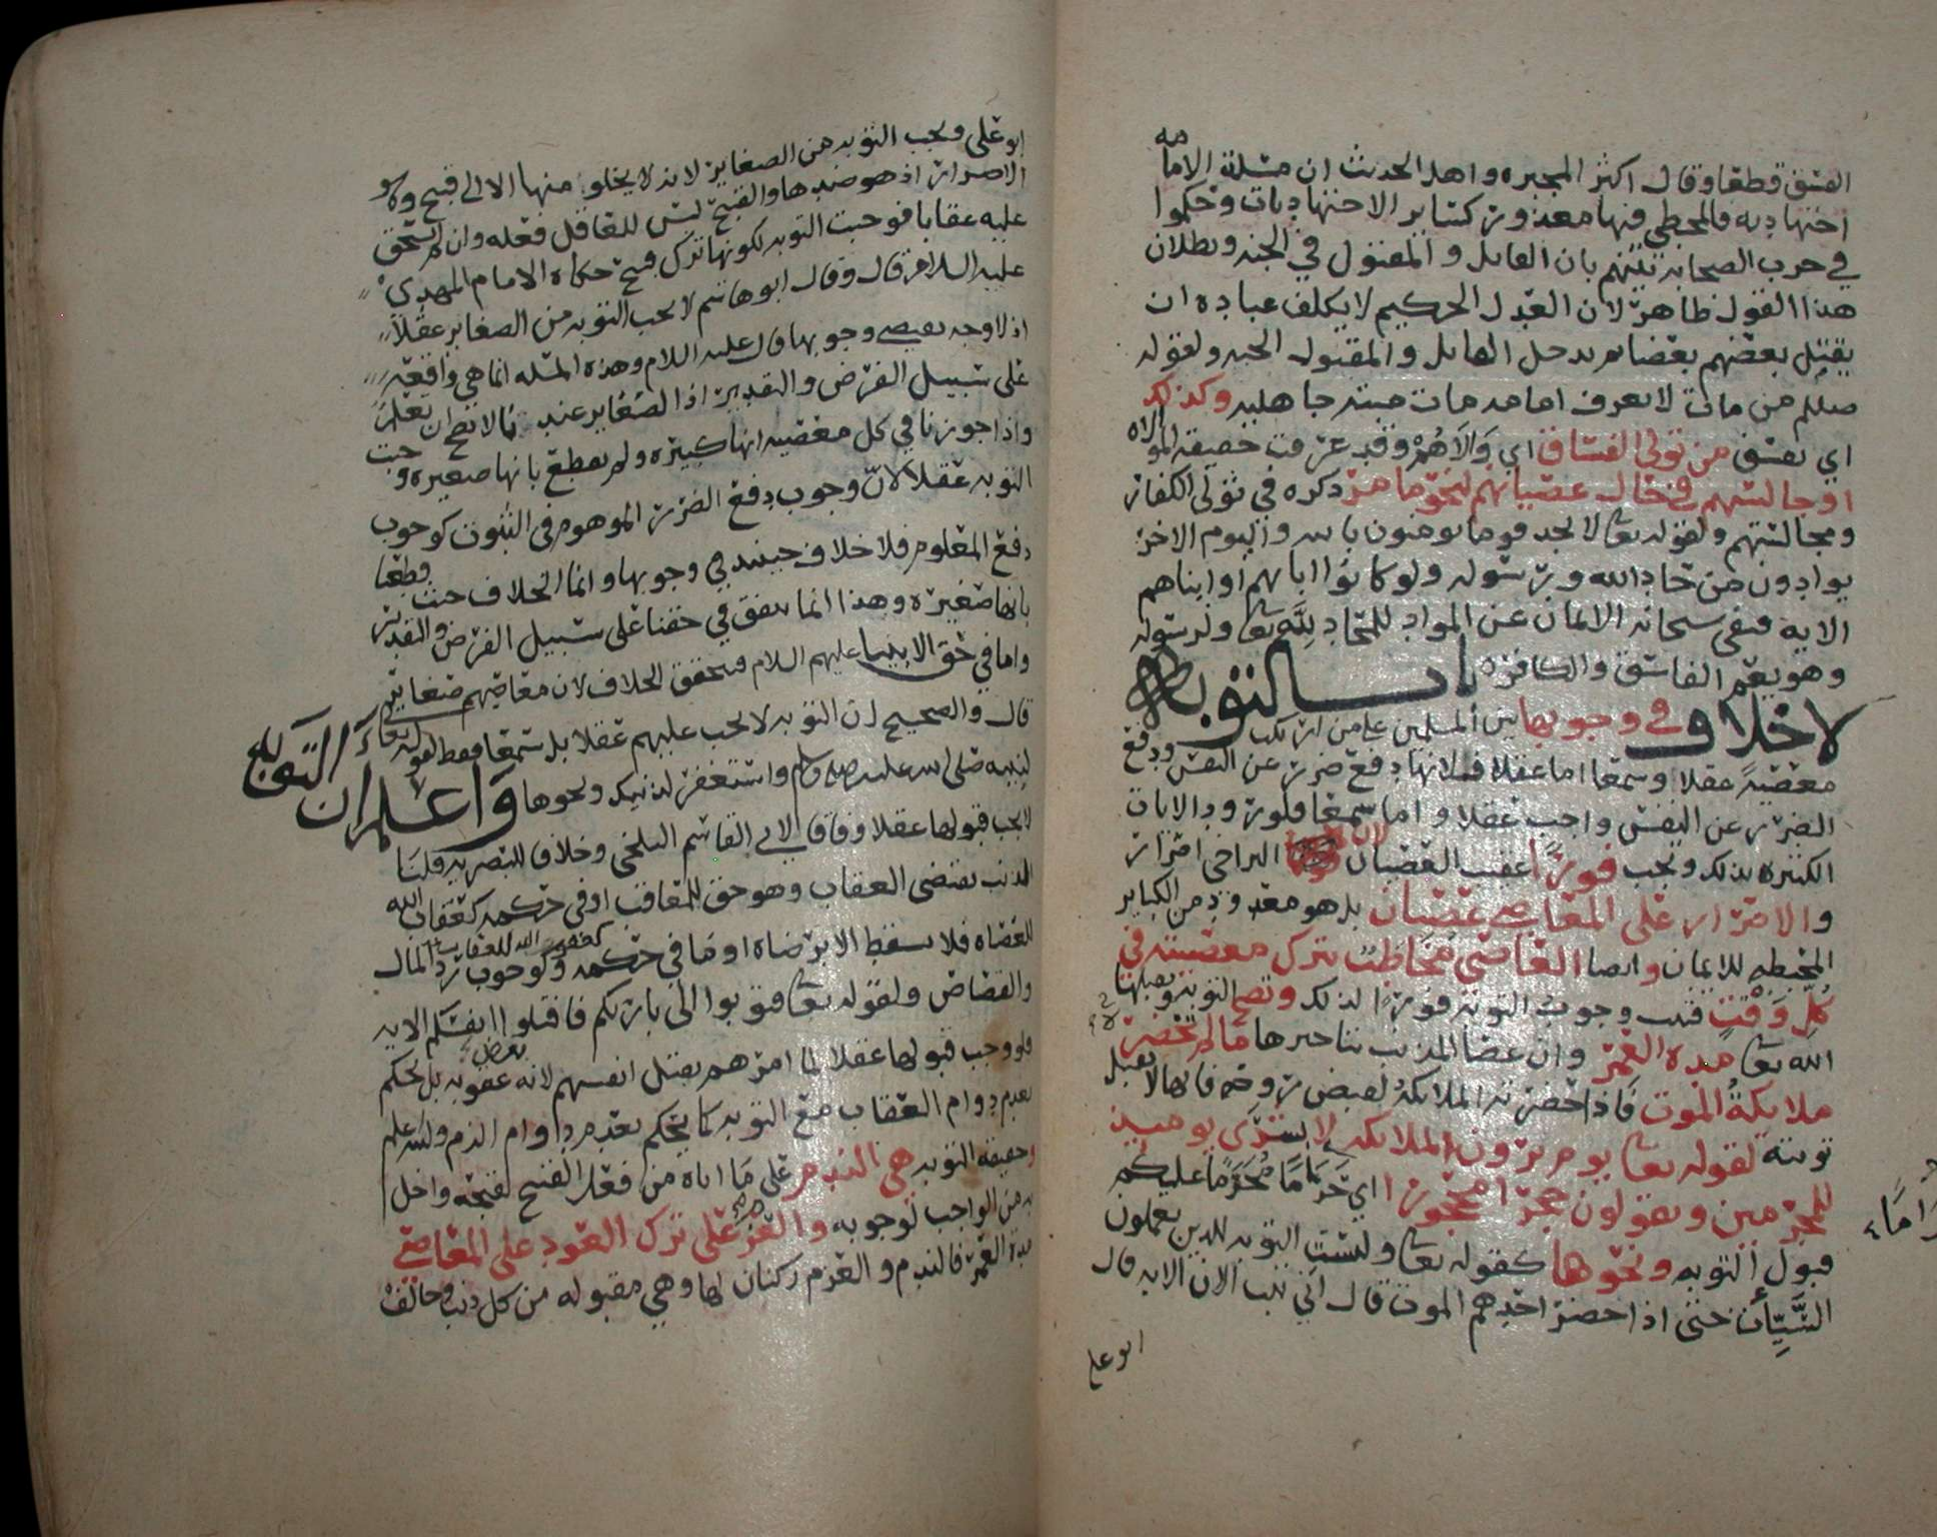 الفسق قطعا وقال اكثر المجبره واهل الحديث ان مسئلة الامامه
اجتهاديه فالمخطي فيها معذور كسائر الاجتهاديات وحكموا
في حرب الصحابه بينهم بان القاتل والمقتول في الجنه وبطلان
هذا القول ظاهر لان العدل الحكيم لا يكلف عباده ان
يقتل بعضهم بعضا ثم يدخل القاتل والمقتول الجنه ولقوله
صللم من مات لا يعرف امامه مات ميتة جاهليه وكذلك
اي يفسق من تولى الفساق اي والاهم وقد عرفت حقيقة الموالاه
او جالسهم في حال عصيانهم لنحو ما مر ذكره في تولي الكفار
ومجالستهم ولقوله تعا لا تجد قوما يومنون بالله واليوم الاخر
يوادون من حاد الله ورسوله ولو كانوا اباهم او ابناهم
الايه فنفى سبحانه الايمان عن المواد للمحاد لله تعا ولرسوله
وهو يعم الفاسق والكافر باب التوبة
لا خلاف في وجوبها بين المسلمين على من ارتكب
معصية عقلا وسمعا اما عقلا فلانها دفع ضرر عن النفس ودفع
الضرر عن النفس واجب عقلا واما سمعا فلورود الايات
الكثيره بذلك ويجب فورا عقيب العصيان لان التراخي اصرار
والاصرار على المعاصي عصيان بل هو معدود من الكبائر
المحبطه للايمان وايضا العاصي مخاطب بترك معصيته في
كل وقت فيجب وجوب التوبة فورا لذلك وتصح التوبة ويقبلها
الله تعا مدة العمر وان عصا المذنب بتاخيرها ما لم تحضره
ملايكة الموت فاذا حضرته الملايكة لقبض روحه فانها لا تقبل
توبته لقوله تعا يوم يرون الملايكه لا بشرى يوميذ
للمجرمين ويقولون حجرا محجورا اي حراما محرما عليكم
قبول التوبه ونحوها كقوله تعا وليست التوبه للذين يعملون
السيئات حتى اذا حضر احدهم الموت قال اني تبت الان الايه قال
ابو علي
ابو علي وتجب التوبه من الصغاير لانه لا يخلو منها الا الى قبيح وهو
الاصرار اذ هو ضدها والقبيح ليس للعاقل فعله وان لم يستحق
عليه عقابا فوجبت التوبه لكونها ترك قبيح حكاه الامام المهدي
عليه السلام قال وقال ابو هاشم لا تجب التوبه من الصغاير عقلا
اذ لا وجه يقتضي وجوبها قال عليه السلام وهذه المسئله انما هي واقعة
على سبيل الفرض والتقدير اذ الصغاير عندنا لا يصح ان تعلم
واذا جوزنا في كل معصيه انها كبيره ولم نقطع بانها صغيره وجبت
التوبه عقلا لان وجوب دفع الضرر الموهوم في الثبوت كوجوب
دفع المعلوم فلا خلاف حينئذ في وجوبها وانما الخلاف حيث قطعنا
بانها صغيره وهذا انما يتفق في حقنا على سبيل الفرض والتقدير
واما في حق الانبيا عليهم السلام فيتحقق الخلاف لان معاصيهم صغاير
قال والصحيح ان التوبه لا تجب عليهم عقلا بل سمعا فقط لقوله تعا
لنبيه صلى الله عليه وسلم واستغفر لذنبك ونحوها واعلم ان التوبة
لا يجب قبولها عقلا وفاقا لابي القاسم البلخي وخلاف للبصريه قلنا
الذنب يقتضي العقاب وهو حق للمعاقب او في حكمه كعقاب الله
للعصاه فلا يسقط الا برضاه او ما في حكمه كعفو الله للعقاب وكوجوب رد المال
والقصاص ولقوله تعا فتوبوا الى بارئكم فاقتلوا انفسكم الايه
فلو وجب قبولها عقلا لما امرهم بقتل انفسهم لانه عقوبه بل نحكم
بعدم دوام العقاب مع التوبه كما يحكم بعدم دوام الذم وليس علم
وحقيقة التوبه هي الندم على ما اتاه من فعل القبيح لقبحه واخل
به من الواجب لوجوبه والعزم على ترك العود على المعاصي
مدة العمر فالندم والعزم ركنان لها وهي مقبوله من كل ذنب وخالف